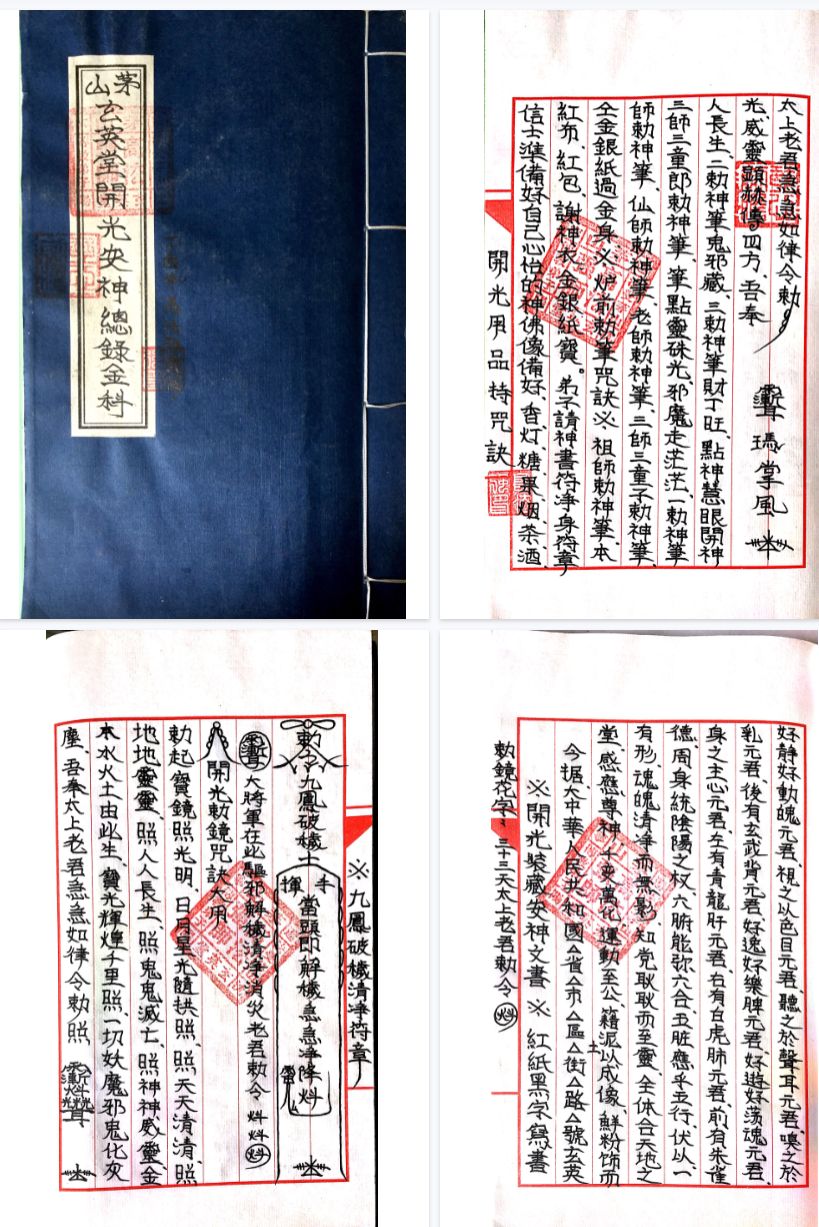 茅山玄英堂開光安神總錄金科
開光用品持咒訣
信士準備好自己心怡的神佛像備好、香灯、糖果烟、茶酒、
紅布、紅包、謝神衣金銀紙寶。弟子請神書符淨身符章
仝金銀紙過金身※炉前勅筆咒訣※祖師勅神筆、本
師勅神筆、仙師勅神筆、老師勅神筆、三師三童子勅神筆
三師三童郎勅神筆、筆點靈硃光、邪魔走茫茫、一勅神筆
人長生、二勅神筆鬼邪藏、三勅神筆財丁旺、點神慧眼開神
光、威靈顯赫傳四方、吾奉
太上老君急急如律令勅
掌風
※九鳳破穢清淨符章
勅令九鳳破穢
押煇
當頭即解穢急急淨降
大將軍在此驅邪解穢清淨消災老君勅令
開光勅鏡咒訣大用
勅起寶鏡照光明、日月星光隨拱照、照天天清清、照
地地靈靈、照人人長生、照鬼鬼滅亡、照神神威靈、金
木水火土由此生、寶光輝煌千里照、一切妖魔邪鬼化灰
塵、吾奉太上老君急急如律令勅照、
勅鏡花字：三十三天太上老君勅令
※開光裝藏安神文書※紅紙黑字寫書
今据大中華人民共和國△省△市△區△街△路△號玄英
堂、感應尊神、千変萬化、運動至公、籍泥土以成像、鮮粉饰而
有形、魂魄清净而無影、知覚耿耿而至靈、全体合天地之
德、周身統陰陽之权、六腑能弥六合、五脏應乎五行、伏以、一
身之主心元君、左有青龍肝元君、右有白虎肺元君、前有朱雀
乳元君、後有玄武背元君、好逸好樂脾元君、好遊好荡魂元君、
好静好動魄元君、視之以色目元君、聽之於聲耳元君、嗅之於